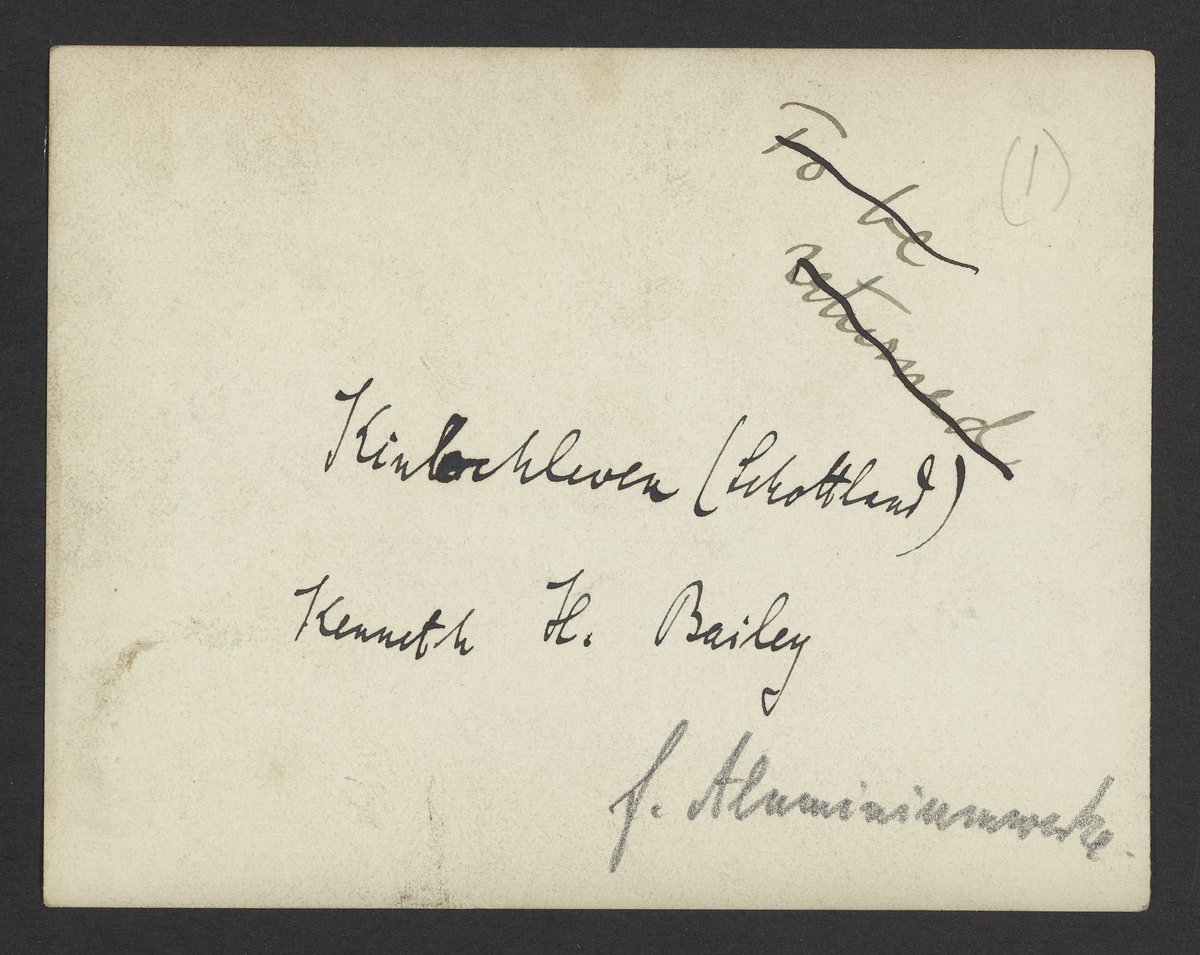 (1)
To be
returned
Kinlochleven (Schottland)
Kenneth H. Bailey
f. Aluminiumwerke.